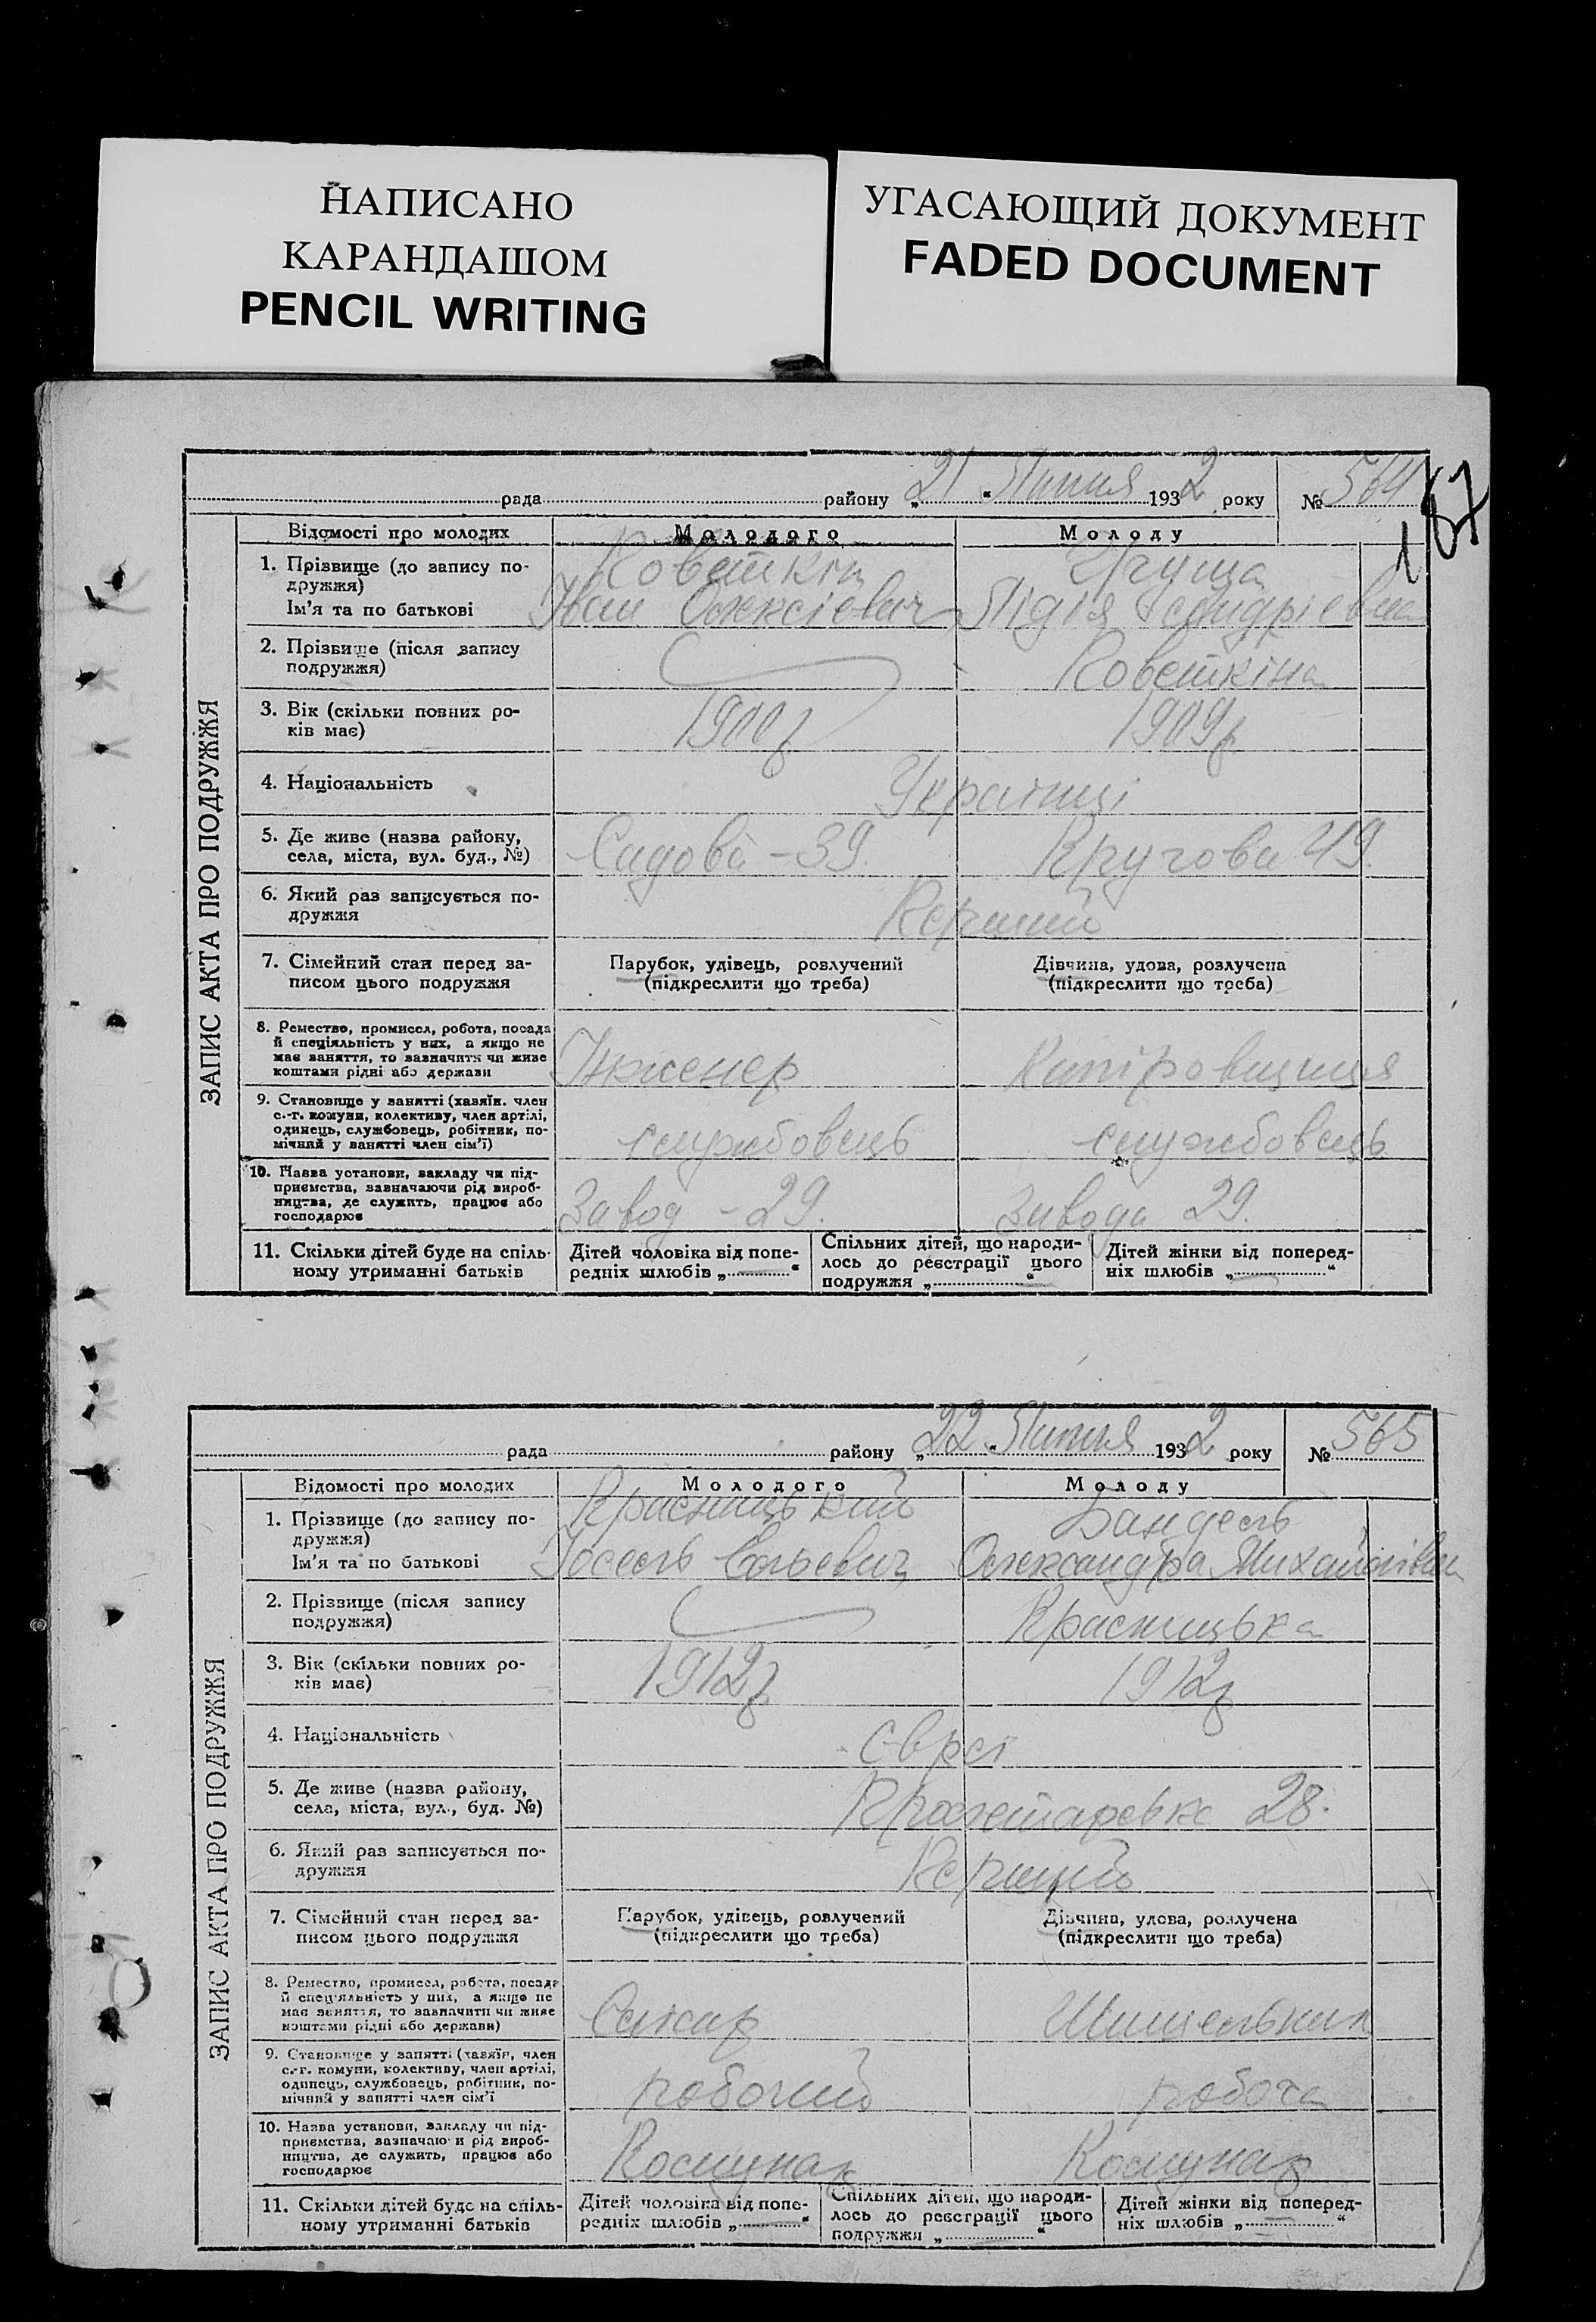 НАПИСАНО
КАРАНДАШОМ
PENCIL WRITING
УГАСАЮЩИЙ ДОКУМЕНТ
FADED DOCUMENT
187
рада району „21“ Липня 1932 року № 564
ЗАПИС АКТА ПРО ПОДРУЖЖЯ
Відомості про молодих Молодого Молоду
1. Прізвище (до запису по-
дружжя)
Ім'я та по батькові
Ковешкін
Іван Олексієвич
Груша
Лідія
2. Прізвище (після запису
подружжя)
Ковешкіна
3. Вік (скільки повних ро-
ків має)
1900р 1909р
4. Національність
Українці
5. Де живе (назва району,
села, міста, вул. буд., №)
Садова - 39. Кругова 49.
6. Який раз записується по-
дружжя
Перший
7. Сімейний стан перед за-
писом цього подружжя
Парубок, удівець, розлучений
(підкреслити що треба)
Дівчина, удова, розлучена
(підкреслити що треба)
8. Ремество, промисел, робота, посада
й спеціяльність у них, а якщо не
має заняття, то зазначити чи живе
коштами рідні або держави
Інженер Копіровщиця
9. Становище у занятті (хазяїн, член
с.-г. комуни, колективу, член артілі,
одинець, службовець, робітник, по-
мічний у занятті член сім'ї)
службовець службовець
10. Назва установи, закладу чи під-
приємства, зазначаючи рід вироб-
ництва, де служить, працює або
господарює
Завод - 29. Завода 29.
11. Скільки дітей буде на спіль-
ному утриманні батьків
Дітей чоловіка від попе-
редніх шлюбів „ “
Спільних дітей, що народи-
лось до реєстрації цього
подружжя „ “
Дітей жінки від поперед-
ніх шлюбів „ “
рада району „22“ Липня 1932 року № 565
ЗАПИС АКТА ПРО ПОДРУЖЖЯ
Відомості про молодих Молодого Молоду
1. Прізвище (до запису по-
дружжя)
Ім'я та по батькові
Красницький
Йосель
Бандель
Олександра Михайлівна
2. Прізвище (після запису
подружжя)
Красницька
3. Вік (скільки повних ро-
ків має)
1912р 1912р
4. Національність
Євреї
5. Де живе (назва району,
села, міста, вул., буд. №)
Пролетарська 28.
6. Який раз записується по-
дружжя
Перший
7. Сімейний стан перед за-
писом цього подружжя
Парубок, удівець, розлучений
(підкреслити що треба)
Дівчина, удова, розлучена
(підкреслити що треба)
8. Ремество, промисел, робота, посада
й спеціяльність у них, а якщо не
має заняття, то зазначити чи живе
коштами рідні або держави)
Слюсар
9. Становище у занятті (хазяїн, член
с.-г. комуни, колективу, член артілі,
одинець, службовець, робітник, по-
мічний у занятті член сім'ї
робочий робоча
10. Назва установи, закладу чи під-
приємства, зазначаючи рід вироб-
ництва, де служить, працює або
господарює
Комунар Комунар
11. Скільки дітей буде на спіль-
ному утриманні батьків
Дітей чоловіка від попе-
редніх шлюбів „ “
Спільних дітей, що народи-
лось до реєстрації цього
подружжя „ “
Дітей жінки від поперед-
ніх шлюбів „ “